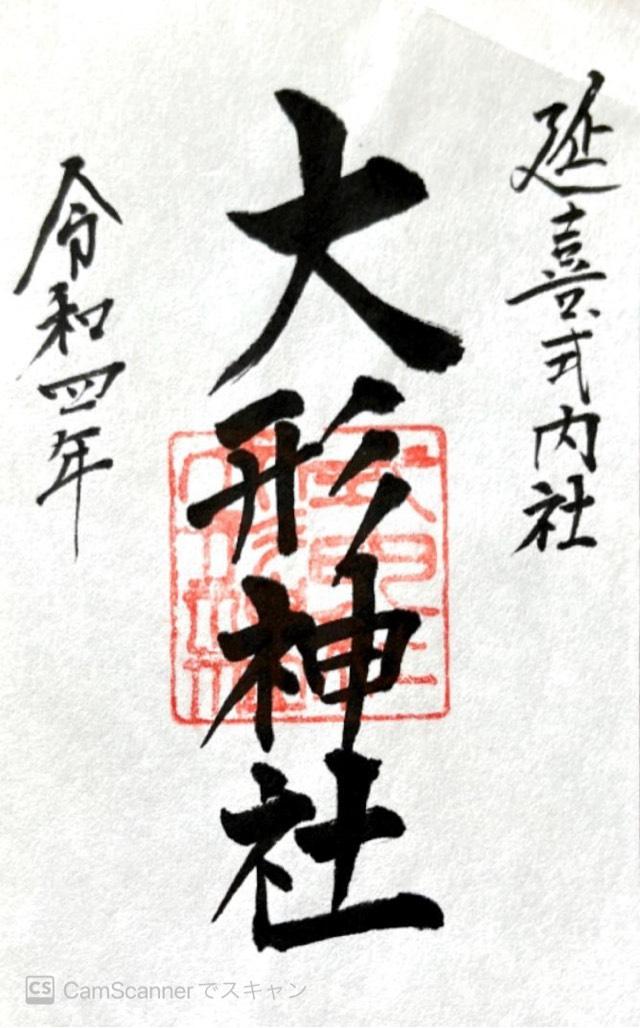 延喜式内社
大形神社
令和四年
CS CamScannerでスキャン